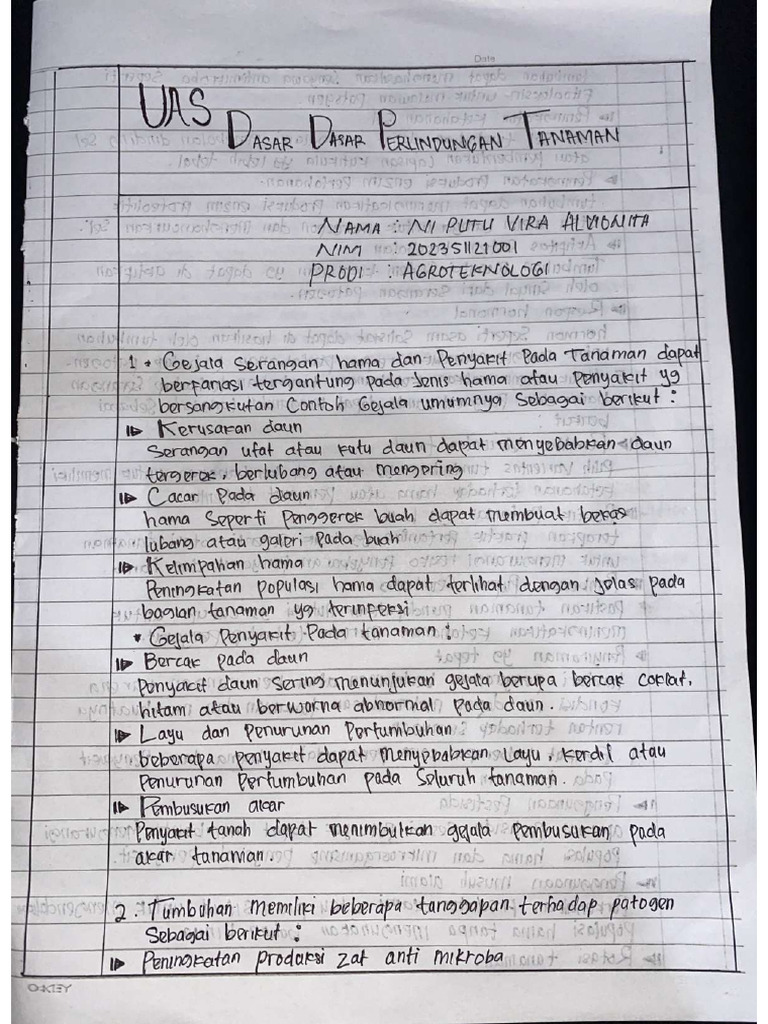 Date
UAS DASAR DASAR PERLINDUNGAN TANAMAN
NAMA : NI PUTU VIRA ALVIONITA
NIM : 202351121001
PRODI : AGROTEKNOLOGI
1. Gejala Serangan hama dan Penyakit Pada Tanaman dapat
berfariasi tergantung pada Jenis hama atau Penyakit yg
bersangkutan Contoh Gejala umumnya Sebagai berikut :
Kerusakan daun
Serangan ulat atau kutu daun dapat menyebabkan daun
tergerek, berlubang atau mengering
Cacar Pada daun
hama Seperti Penggerek buah dapat membuat bekas
lubang atau galeri pada buah
Kelimpahan hama
Peningkatan populasi hama dapat terlihat dengan jelas pada
bagian tanaman yg terinfeksi
* Gejala Penyakit Pada tanaman :
Bercak pada daun
Penyakit daun Sering menunjukan gejala berupa bercak coklat,
hitam atau berwarna abnormal pada daun.
Layu dan Penurunan Pertumbuhan
beberapa penyakit dapat menyebabkan Layu, Kerdil atau
Penurunan Pertumbuhan pada Seluruh tanaman.
Pembusukan akar
Penyakit tanah dapat menimbulkan gejala Pembusukan pada
akar tanaman.
2. Tumbuhan memiliki beberapa tanggapan terhadap patogen
Sebagai berikut :
Peningkatan produksi zat anti mikroba